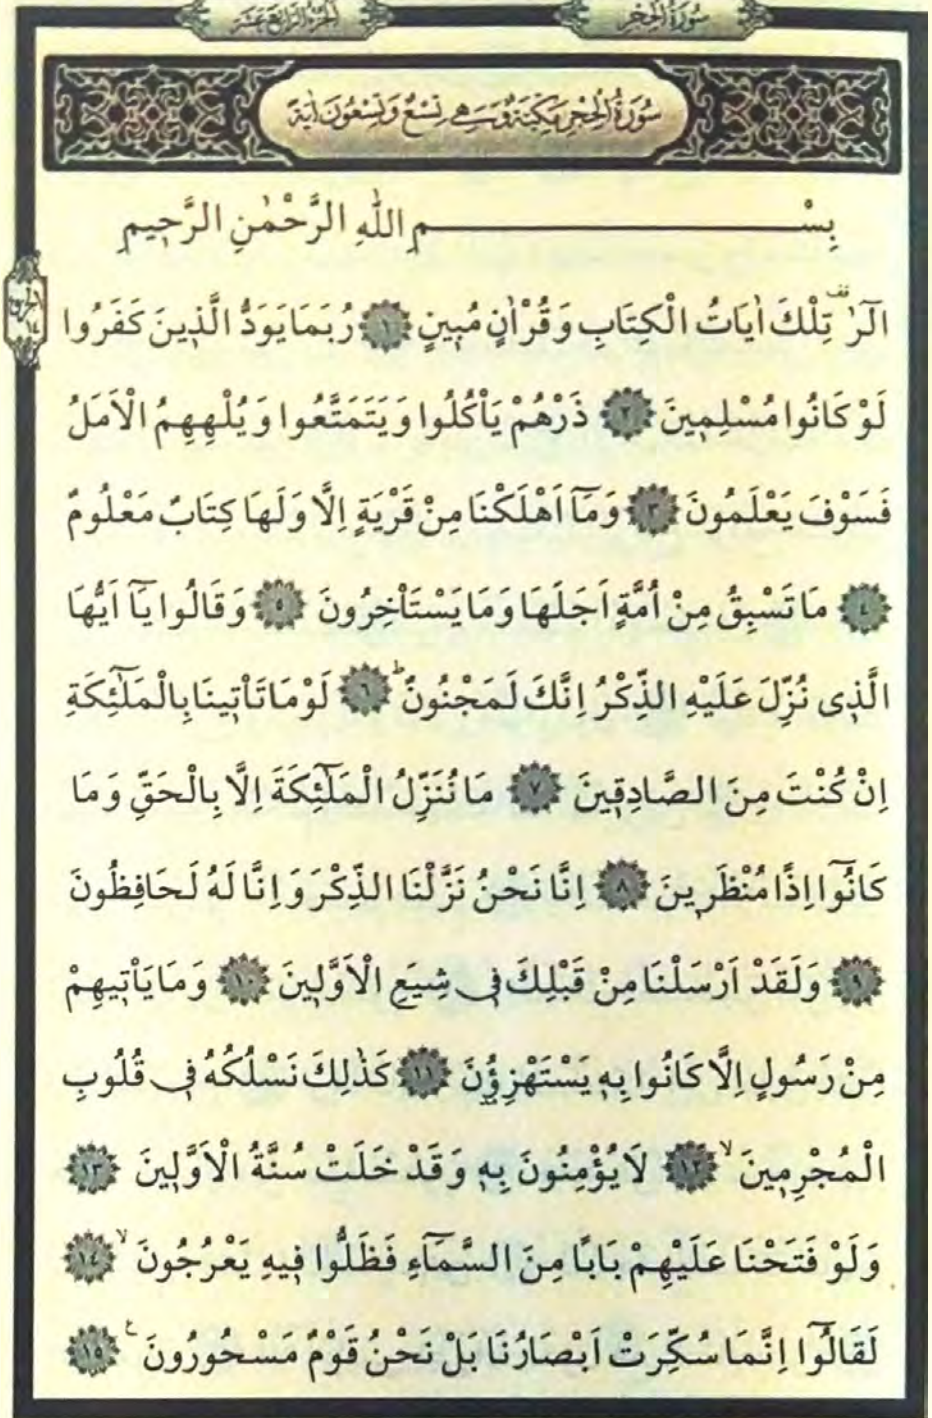 سُورَةُ الْحِجْرِ
اَلْجُزْءُ الرَّابِعَ عَشَرَ
سُورَةُ الْحِجْرِ مَكِّيَّةٌ وَهِيَ تِسْعٌ وَتِسْعُونَ اٰيَةً
بِسْمِ اللّٰهِ الرَّحْمٰنِ الرَّحِيمِ
الجزء ١٤
الٓرٰ ࣞ تِلْكَ اٰيَاتُ الْكِتَابِ وَقُرْاٰنٍ مُبِينٍ ﴿١﴾ رُبَمَا يَوَدُّ الَّذِينَ كَفَرُوا
لَوْ كَانُوا مُسْلِمِينَ ﴿٢﴾ ذَرْهُمْ يَأْكُلُوا وَيَتَمَتَّعُوا وَيُلْهِهِمُ الْاَمَلُ
فَسَوْفَ يَعْلَمُونَ ﴿٣﴾ وَمَٓا اَهْلَكْنَا مِنْ قَرْيَةٍ اِلَّا وَلَهَا كِتَابٌ مَعْلُومٌ
﴿٤﴾ مَا تَسْبِقُ مِنْ اُمَّةٍ اَجَلَهَا وَمَا يَسْتَأْخِرُونَ ﴿٥﴾ وَقَالُوا يَٓا اَيُّهَا
الَّذِى نُزِّلَ عَلَيْهِ الذِّكْرُ اِنَّكَ لَمَجْنُونٌۜ ﴿٦﴾ لَوْ مَا تَأْتِينَا بِالْمَلٰٓئِكَةِ
اِنْ كُنْتَ مِنَ الصَّادِقِينَ ﴿٧﴾ مَا نُنَزِّلُ الْمَلٰٓئِكَةَ اِلَّا بِالْحَقِّ وَمَا
كَانُٓوا اِذًا مُنْظَرِينَ ﴿٨﴾ اِنَّا نَحْنُ نَزَّلْنَا الذِّكْرَ وَاِنَّا لَهُ لَحَافِظُونَ
﴿٩﴾ وَلَقَدْ اَرْسَلْنَا مِنْ قَبْلِكَ فِى شِيَعِ الْاَوَّلِينَ ﴿١٠﴾ وَمَا يَأْتِيهِمْ
مِنْ رَسُولٍ اِلَّا كَانُوا بِهِ يَسْتَهْزِؤُنَ ﴿١١﴾ كَذٰلِكَ نَسْلُكُهُ فِى قُلُوبِ
الْمُجْرِمِينَۙ ﴿١٢﴾ لَا يُؤْمِنُونَ بِهِ وَقَدْ خَلَتْ سُنَّةُ الْاَوَّلِينَ ﴿١٣﴾
وَلَوْ فَتَحْنَا عَلَيْهِمْ بَابًا مِنَ السَّمَٓاءِ فَظَلُّوا فِيهِ يَعْرُجُونَۙ ﴿١٤﴾
لَقَالُٓوا اِنَّمَا سُكِّرَتْ اَبْصَارُنَا بَلْ نَحْنُ قَوْمٌ مَسْحُورُونَ ع ﴿١٥﴾